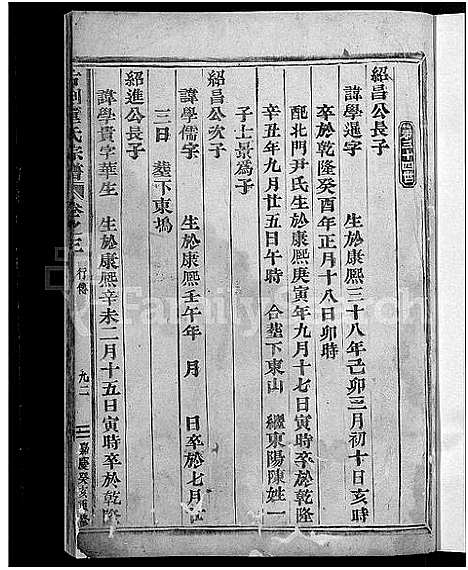 紹昌公長子
諱學暹字 生於康熙三十八年己卯三月初十日亥時
卒於乾隆癸酉年正月十八日卯時
配北門尹氏生於康熙庚寅年九月十七日寅時卒於乾隆
辛丑年九月廿五日午時 合塟下東山 繼東陽陳姓一
子士景為子
紹昌公次子
諱學儒字 生於康熙壬午年 月 日卒於七月廿
三日 塟下東塢
紹進公長子
諱學貴字華生 生於康熙辛未二月十五日寅時卒於乾隆
氏宗譜 卷之三 行傳 九二 嘉慶癸亥重修
FamilySearch